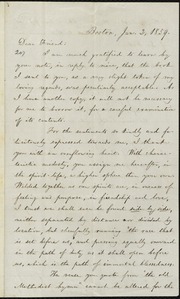 Boston, Jan. 3, 1859.
Dear Friend:
I am much gratified to learn by
your note, in reply to mine, that the book
I sent to you, as a very slight token of my
loving regards, was peculiarly acceptable. As
I have another copy, it will not be necessary
for me to borrow it, for a careful examination
of its contents.
For the sentiments so kindly and
expressed towards me, I thank
you with an overflowing heart. With
modesty, you assign me hereafter, in
the spirit life, a higher sphere than your own
Welded together as our spirits are, in oneness of
feeling and purpose, in friendship and love,
I trust we shall each be found side by side,
neither separated by distance nor divided by
location, but cheerfully running "the race that
is set before us," and pressing equally onward
in the path of duty as it shall open before
us, which is the path of immortal blessedness.
The verse you quote from "the old
Methodist hymn" cannot be altered for the